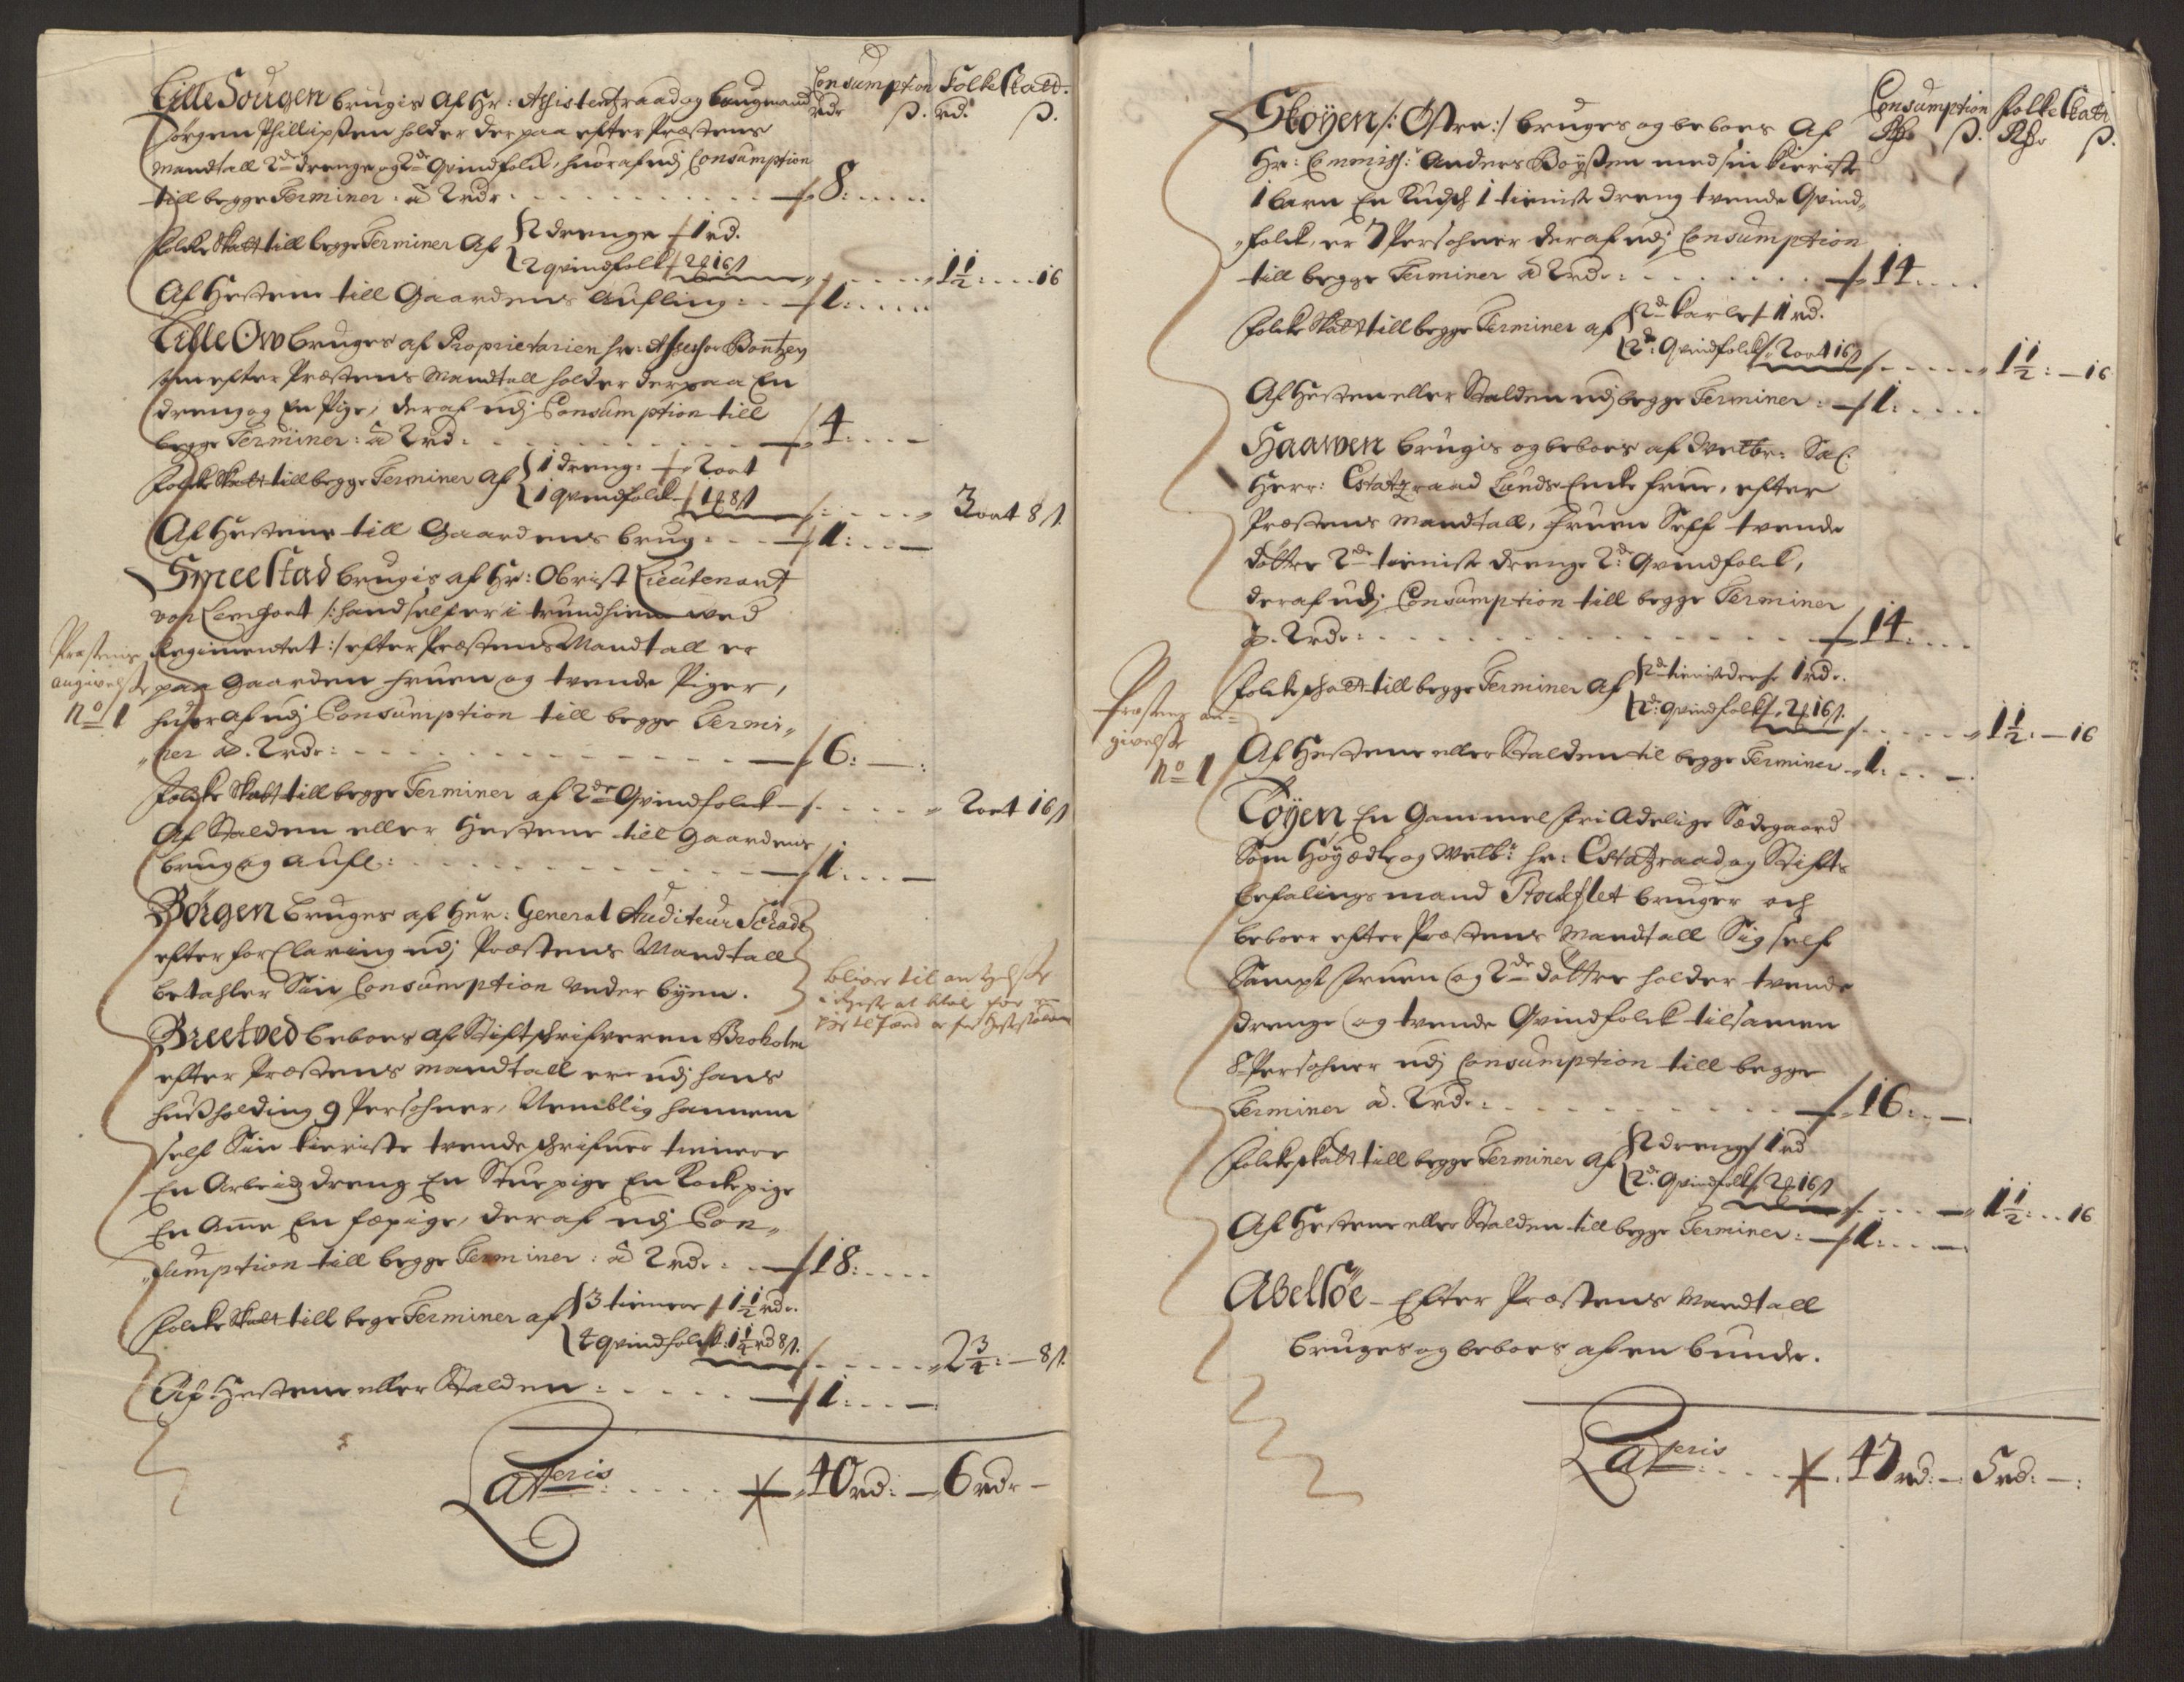 Consumption Folke Skatt.
rdr ß. rd. ß.
Lille Sougen brugis Af Hr: Assistentzraad og Laugmand
Jørgen Phillipsen holder der paa efter Præstens
Mandtall 2de drenge og 2de Qvindfolk, huoraf udj Consumption
till begge Terminer à 2 rdr 8:
Folcke Skatt till begge Terminer Af 2 drenge 1 rd.
2 qvindfolk 2 ort 16 ß 1½ : 16
Af Hestene till Gaardens Aufling: 1:
Lille Ow bruges af Proprietarien Hr: Assessor Bontzen
som efter Præstens Mandtall holder der paa En
dreng og En Pige, deraf udj Consumption till
begge Terminer: à 2 rd: 4:
Folcke Skatt till begge Terminer Af 1 dreng: 2 ort
1 qvindfolck 1 ort 8 ß 3 ort 8 ß
Af Hestene till Gaardens brug: 1:
Smeestad brugis af Hr: Obrist Lieutenant
von /: hand self er i trundhiem ved
Regimentet :/ efter Præstens Mandtall er
paa Gaarden fruen og tvende Piger,
Præstens angivelse
No 1
huoraf udj Consumption till begge Termi,,
,,ner à 2 rdr: 6:
Folcke Skatt till begge Terminer af 2de Qvindfolck 2 ort 16 ß
Af Stalden eller Hestene till Gaardens
brug og aufl: 1:
Börgen bruges af Her: General Auditeur Schade
efter forClaring udj Præstens Mandtall
betahler Sin Consumption under byen.
bliver til
Breetved beboes af Stiftskrifveren Broholm
efter Præstens mandtall ere udj hans
hussholding 9 Persohner, Nemblig hannem
self Sin kieriste tvende skrifver tienere
En Arbeidz dreng En Stue pige En Kockepige
En Ame En fæpige, deraf udj Con,,
,,sumption till begge Terminer: à 2 rdr: 18:
Folcke Skatt till begge Terminer af 3 tienere 1½ rdr.
4 qvindfolck: 1¼ rd 8 ß. 2¾: 8 ß.
Af Hestene eller Stalden: 1:
Lateris 40 rd: 6 rdr
Consumption Folke Skatt
Rdr ß. Rdr ß.
Skøyen /: Østre :/ bruges og beboes Af
Hr: Commiss: Anders Boysen med sin Kieriste
1 barn En Kudsk 1 tieniste dreng tvende Qvind,,
,,folck, er 7 Persohner deraf udj Consumption
till begge Terminer à 2 rdr: 14
Folcke Skatt till begge Terminer af 2de karle 1 rd.
2de Qvindfolck 2 ort 16 ß 1½: 16
Af Hesten eller Stalden udj begge Terminer: 1:
Haawen brugis og beboes af Sal:
Herr: Estatzraad Lunds Encke frue, efter
Præstens Mandtall, fruen Self tvende
døttre 2de tieniste drenge 2de Qvindfolck,
deraf udj Consumption till begge Terminer
p. 2 rdr: 14:
Folcke skatt till begge Terminer af 1 rdr.
2de qvindfolck 2 ort 16 ß. 1½: 16
Præstens an=
givelse
No 1
Af Hestene eller Stalden til begge Terminer 1:
Tøyen En Gammel fri Adelige Sædegaard
Som Høyædle og Welb: Hr: Estatzraad og Stifts
befalings mand Stockflet bruger och
beboer efter Præstens Mandtall Sig self
Sampt fruen og 2de døttre holder tvende
drenge og tvende Qvindfolck tilsamen
8 Persohner udj Consumption till begge
Terminer à 2 rdr: 16:
Folcke skatt till begge Terminer Af 2 drenge 1 rd
2de qvindfolk 2 ort 16 ß 1½: 16
Af Hestene eller Stalden till begge Terminer: 1:
Abelsøe – Efter Præstens Mandtall
bruges og beboes af en bunde.
Lateris 47 rd: 5 rd: